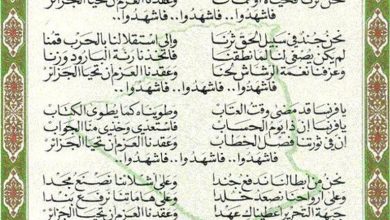 نحن ثرنا فحياة أو ممات وعقدنا العزم أن تحيا الجزائر
فاشهدوا.. فاشهدوا.. فاشهدوا..
نحن جند في سبيل الحق ثرنا وإلى استقلالنا بالحرب قمنا
لم يكن يصغى لنا لما نطقنا فاتخذنا رنة البارود وزنا
وعزفنا نغمة الرشاش لحنا وعقدنا العزم أن تحيا الجزائر
فاشهدوا.. فاشهدوا.. فاشهدوا..
يا فرنسا قد مضى وقت العتاب وطويناه كما يطوى الكتاب
يا فرنسا إن ذا يوم الحساب فاستعدي وخذي منا الجواب
إن في ثورتنا فصل الخطاب وعقدنا العزم أن تحيا الجزائر
فاشهدوا.. فاشهدوا.. فاشهدوا..
نحن من أبطالنا ندفع جندا وعلى أشلائنا نصنع مجدا
وعلى أرواحنا نصعد خلدا وعلى هاماتنا نرفع بندا
جبهة التحرير أعطيناك عهدا وعقدنا العزم أن تحيا الجزائر